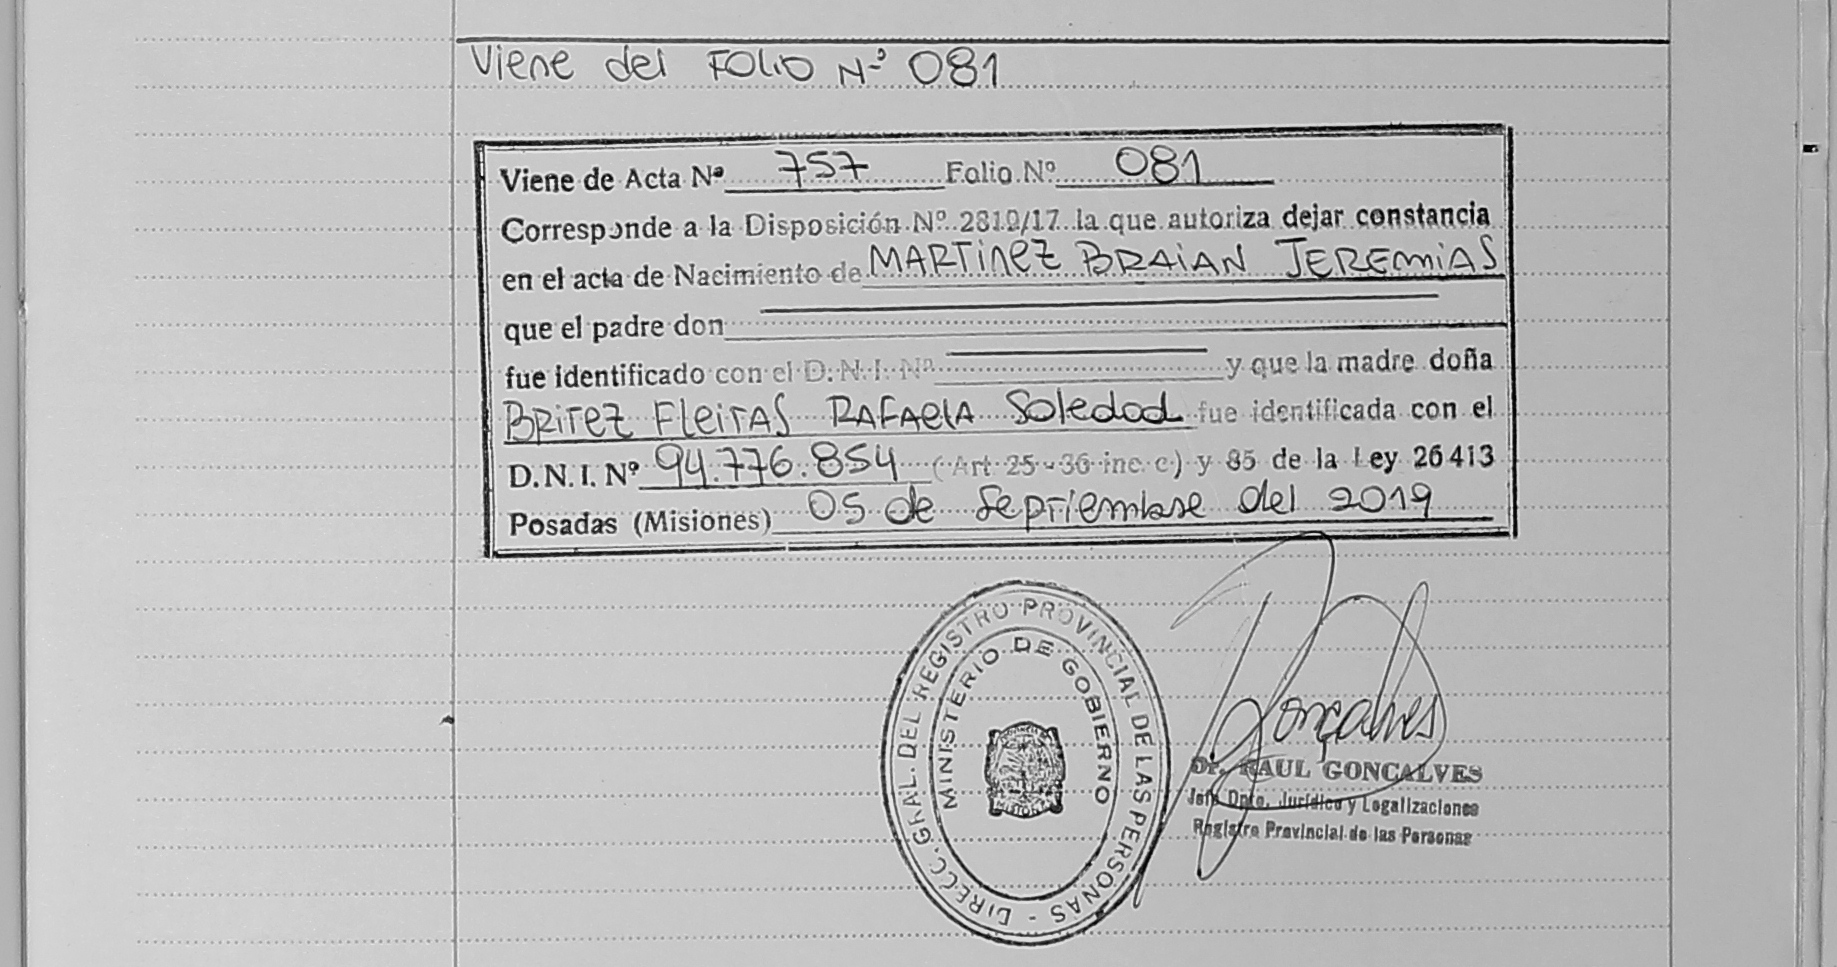 Viene del FOLIO Nº 081
Viene de Acta Nº 757 Folio Nº 081
Corresponde a la Disposición Nº 2810/17 la que autoriza dejar constancia
en el acta de Nacimiento de MARTINEZ BRAIAN JEREMIAS
que el padre don
fue identificado con el D.N.I. Nº y que la madre doña
BRITEZ FLEITAS RAFAELA Soledad fue identificada con el
D.N.I. Nº 94.776.854 (Art 25-36 inc c) y 85 de la Ley 26413
Posadas (Misiones) 05 de Septiembre del 2019
DIRECC. GRAL. DEL REGISTRO PROVINCIAL DE LAS PERSONAS -
MINISTERIO DE GOBIERNO
Gonçalves
Dr. RAUL GONCALVES
Jefe Dpto. Jurídico y Legalizaciones
Registro Provincial de las Personas